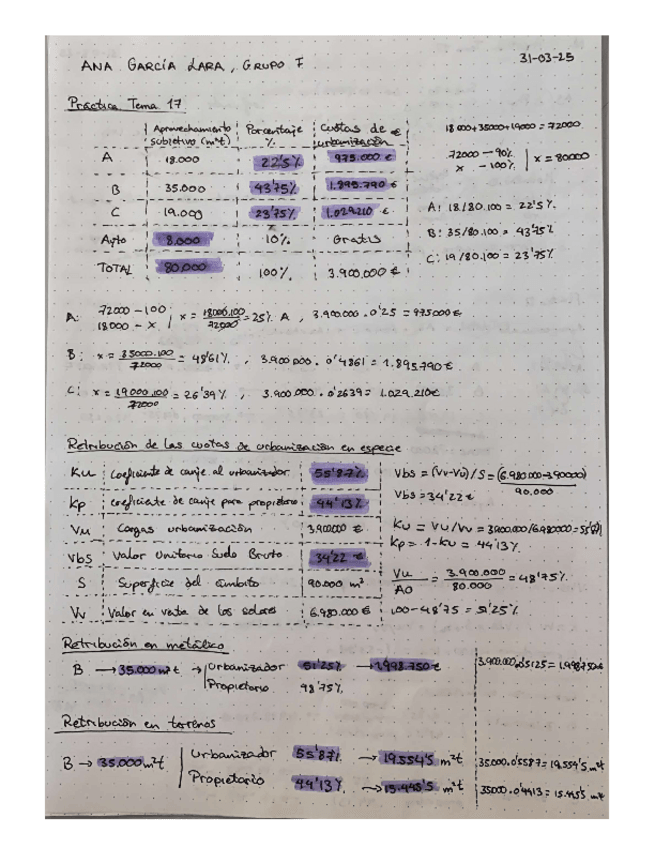 ANA GARCÍA LARA, GRUPO F
31-03-25
Práctica Tema 17
Aprovechamiento subjetivo (m²t) | Porcentaje % | Cuotas de urbanización €
A | 18.000 | 22'5% | 975.000 €
B | 35.000 | 43'75% | 1.895.790 €
C | 19.000 | 23'75% | 1.029.210 €
Ayto | 8.000 | 10% | Gratis
TOTAL | 80.000 | 100% | 3.900.000 €
18000+35000+19000 = 72000
72000 — 90%
x — 100% | x = 80000
A: 18/80.100 = 22'5%
B: 35/80.100 = 43'75%
C: 19/80.100 = 23'75%
A: 72000 — 100
18000 — x | x = 18000.100/72000 = 25% A, 3.900.000 . 0'25 = 975000€
B: x = 35000.100/72000 = 48'61%, 3.900.000 . 0'4861 = 1.895.790€
C: x = 19000.100/72000 = 26'39%, 3.900.000 . 0'2639 = 1.029.210€
Retribución de las cuotas de urbanización en especie
Ku | Coeficiente de canje al urbanizador | 55'87%
Kp | coeficiente de canje para propietario | 44'13%
Vu | Cargas urbanización | 3.900.000 €
Vbs | Valor Unitario Suelo Bruto | 34'22 €
S | Superficie del ámbito | 90.000 m²
Vv | Valor en venta de los solares | 6.980.000 €
Vbs = (Vv-Vu)/S = (6.980.000-3.900.000)/90.000
Vbs = 34'22 €
Ku = Vu/Vv = 3.900.000/6.980.000 = 55'87%
Kp = 1-Ku = 44'13%
Vu/AO = 3.900.000/80.000 = 48'75%
100-48'75 = 51'25%
Retribución en metálico
B → 35.000 m²t → | Urbanizador 51'25% → 1.998.750 €
Propietario 48'75%
3.900.000.0'5125 = 1.998.750€
Retribución en terrenos
B → 35.000 m²t | Urbanizador 55'87% → 19.554'5 m²t
Propietario 44'13% → 15.445'5 m²t
35.000.0'5587 = 19.554'5 m²t
35000.0'4413 = 15.445'5 m²t